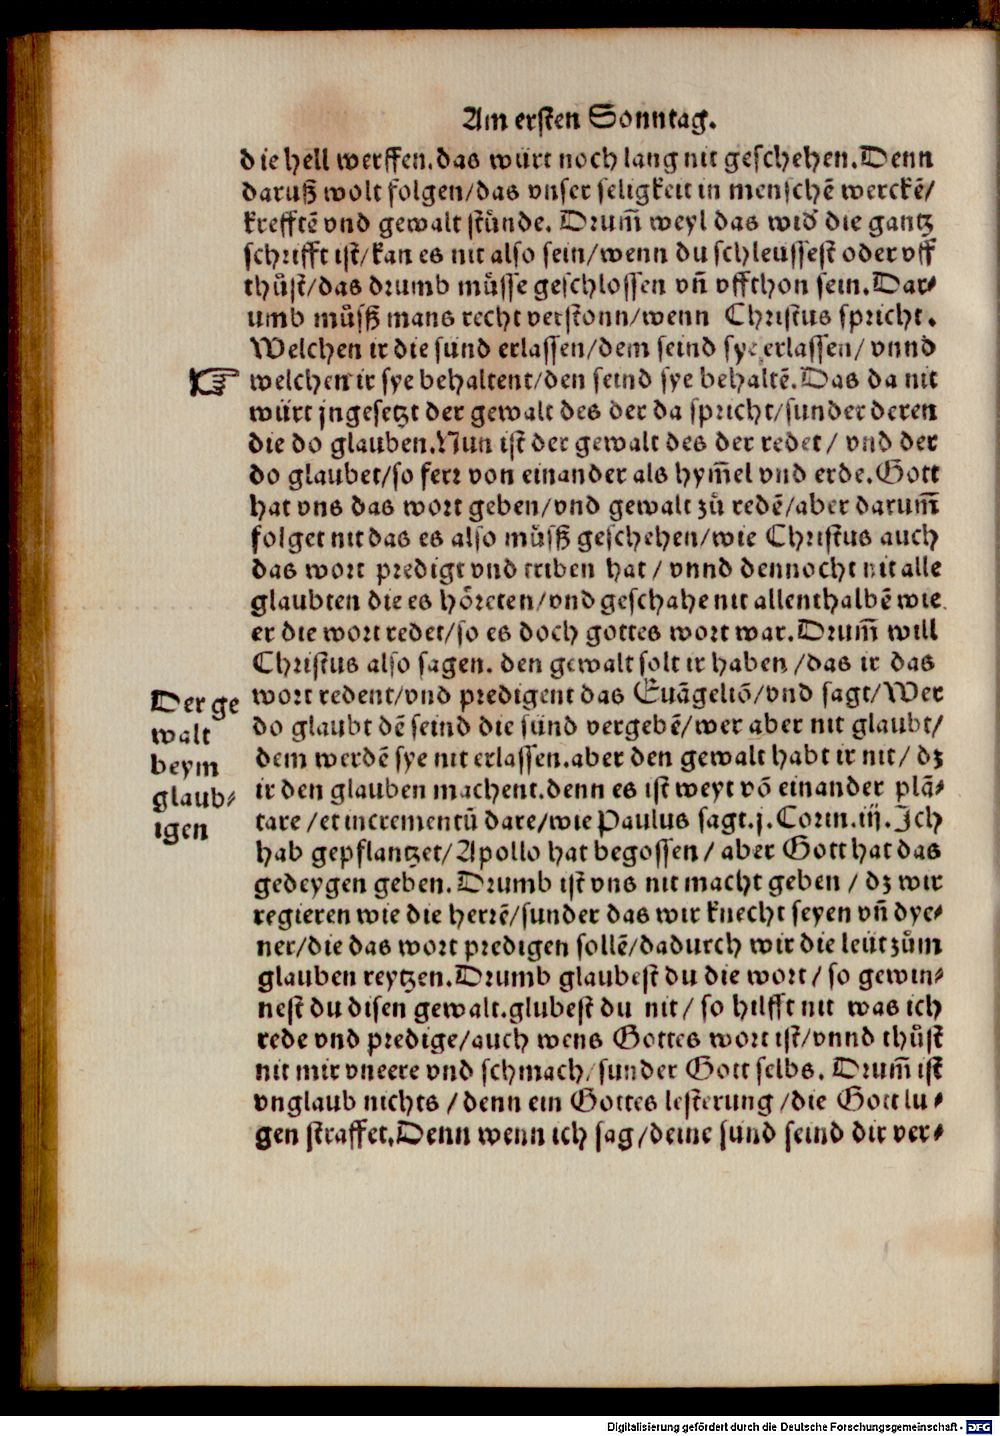 Am ersten Sonntag.
die hell werffen.das würt noch lang nit geschehen.Denn
daruß wolt folgen/das vnser seligkeit in menschē werckē/
krefftē vnd gewalt stünde. Drum̄ weyl das wid die gantz
schrifft ist/kan es nit also sein/wenn du schleussest oder vff
thůst/das drumb můsse geschlossen vn̄ vffthon sein.Dar⸗
umb můsß mans recht verstonn/wenn Christus spricht.
Welchen ir die sünd erlassen/dem seind sye erlassen/ vnnd
welchen ir sye behaltent/den seind sye behaltē.Das da nit
würt jngesetzt der gewalt des der da spricht/sunder deren
die do glauben.Nun ist der gewalt des der redet/ vnd der
do glaubet/so ferr von einander als hym̄el vnd erde.Gott
hat vns das wort geben/vnd gewalt zů redē/aber darum̄
folget nit das es also můsß geschehen/wie Christus auch
das wort predigt vnd triben hat/ vnnd dennocht nit alle
glaubten die es hőreten/vnd geschahe nit allenthalbē wie
er die wort redet/so es doch gottes wort war.Drum̄ will
Christus also sagen. den gewalt solt ir haben/das ir das
wort redent/vnd predigent das Euāgeliō/vnd sagt/Wer
do glaubt dē seind die sünd vergebē/wer aber nit glaubt/
dem werdē sye nit erlassen.aber den gewalt habt ir nit/ dz
ir den glauben machent.denn es ist weyt vō einander plā⸗
tare/et incrementū dare/wie Paulus sagt.j.Corin.iij.Ich
hab gepflantzet/Apollo hat begossen/ aber Gott hat das
gedeygen geben.Drumb ist vns nit macht geben/ dz wir
regieren wie die herrē/sunder das wir knecht seyen vn̄ dye⸗
ner/die das wort predigen sollē/dadurch wir die leüt zům
glauben reytzen.Drumb glaubest du die wort/ so gewin⸗
nest du disen gewalt.glubest du nit/ so hilfft nit was ich
rede vnd predige/auch wens Gottes wort ist/vnnd thůst
nit mir vneere vnd schmach/sunder Gott selbs. Drum̄ ist
vnglaub nichts/denn ein Gottes lesterung/die Gott lu⸗
gen straffet.Denn wenn ich sag/deine sünd seind dir ver⸗
Der ge
walt
beym
glaub⸗
igen
Digitalisierung gefördert durch die Deutsche Forschungsgemeinschaft - DFG